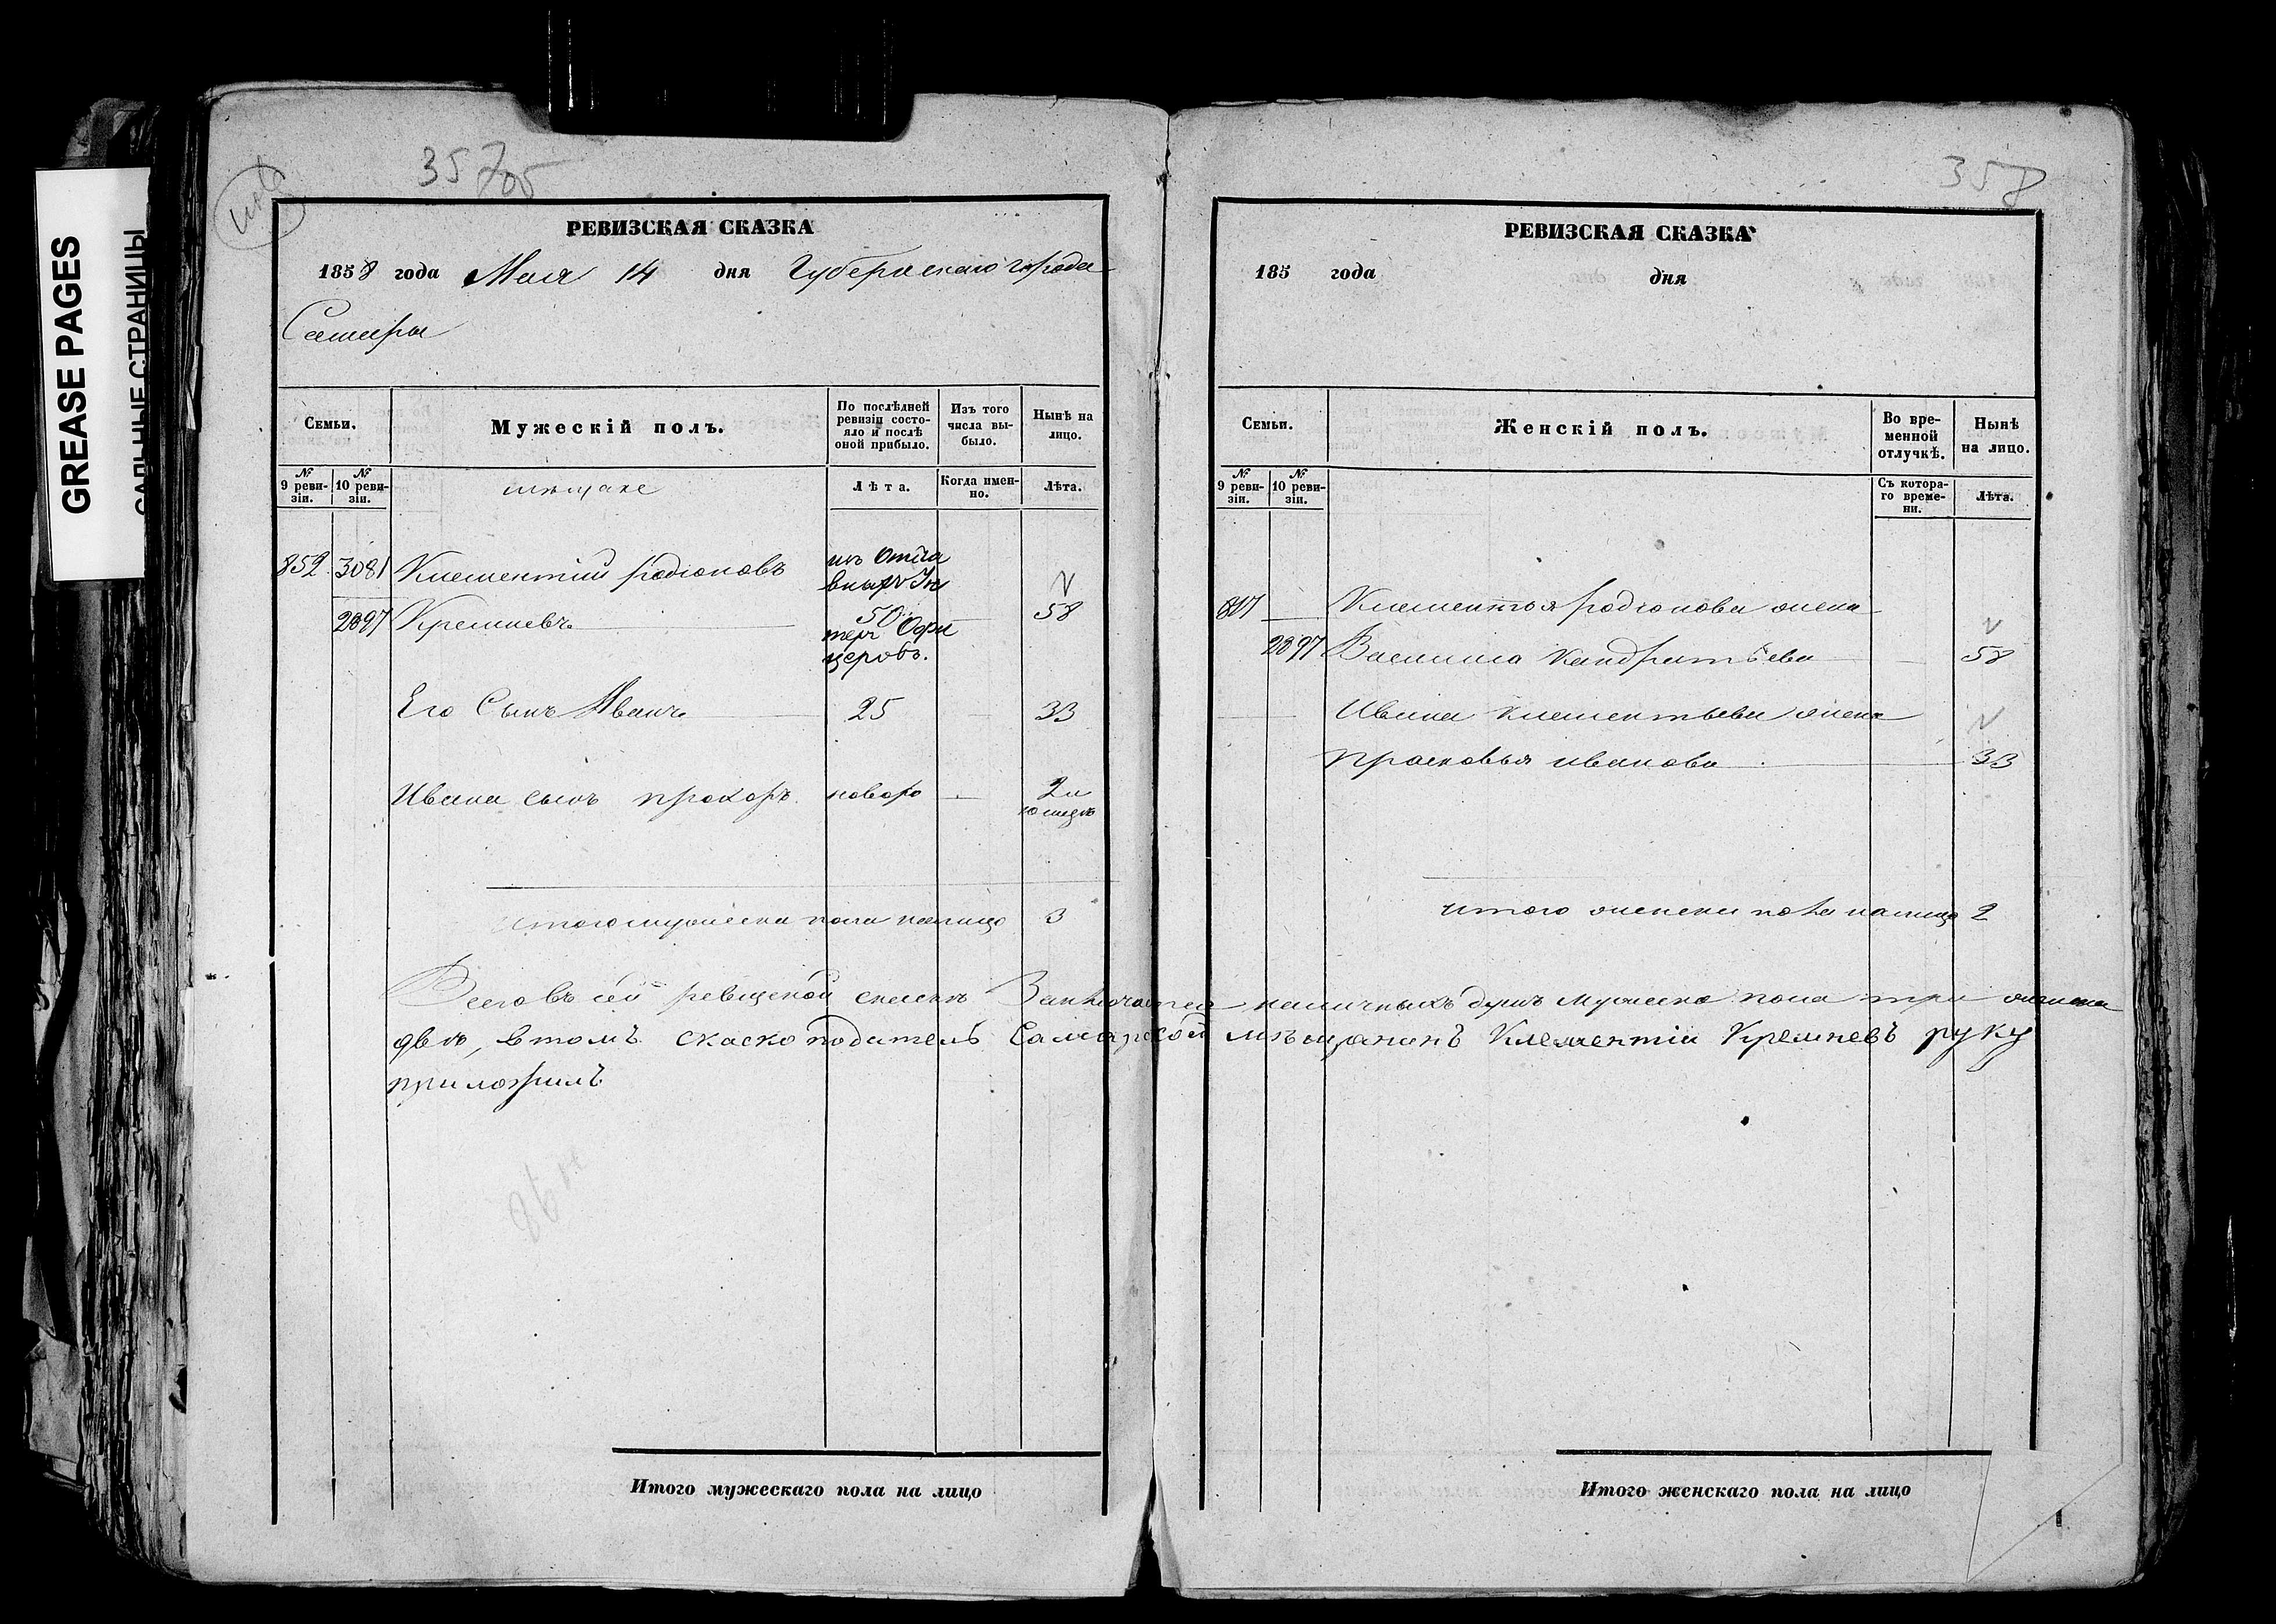 GREASE PAGES
САЛЬНЫЕ СТРАНИЦЫ
357
РЕВИЗСКАЯ СКАЗКА
1858 года Мая 14 дня Губернскаго города
Самары
Семьи.
Мужескій полъ.
По послѣдней ревизіи состояло и послѣ оной прибыло.
Изъ того числа выбыло.
Нынѣ на лицо.
№ 9 ревизіи.
№ 10 ревизіи.
мѣщане
Лѣта.
Когда именно.
Лѣта.
852. 3081 Клементий родіоновъ
2897 Кремневъ 50 58
церовъ.
Его Сынъ Иванъ 25 33
Ивана сынъ прохоръ новоро 2 и
10 мецъ
итого мужеска пола налицо 3
Всего въ сей ревиской скаскѣ Заключается наличныхъ душъ мужеска пола три женска
двѣ, втомъ скаско податель Самарской мѣщанинъ Клементіи Кремневъ руку
приложилъ
Итого мужескаго пола на лицо
358
РЕВИЗСКАЯ СКАЗКА
185 года дня
Семьи.
Женскій полъ.
Во временной отлучкѣ.
Нынѣ на лицо.
№ 9 ревизіи.
№ 10 ревизіи.
Съ котораго времени.
Лѣта.
Клементья родіонова жена
2897 Василиса Кандратьева 58
Ивана клементьева жена
прасковья иванова 33
итого женска пола налицо 2
Итого женскаго пола на лицо